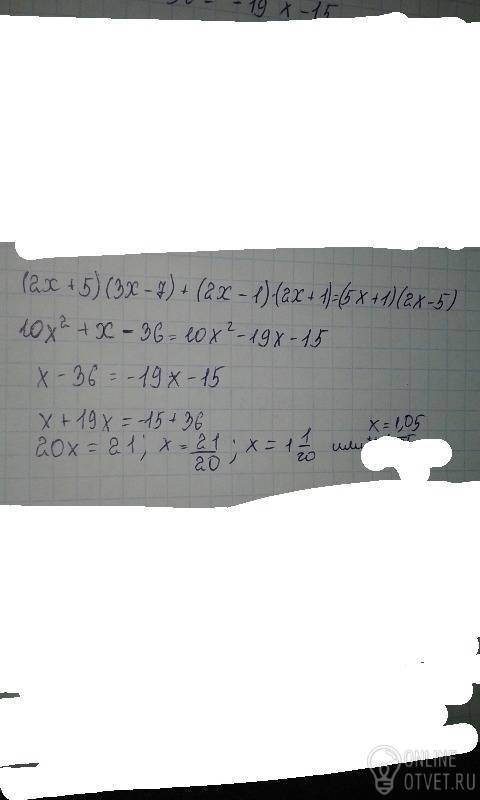 -19x-15
(2x+5)(3x-7)+(2x-1)·(2x+1)=(5x+1)(2x-5)
10x²+x-36=10x²-19x-15
x-36=-19x-15
x+19x=-15+36
20x=21; x=21/20; x=1 1/20 или x=1,05
ONLINE
OTVET.RU